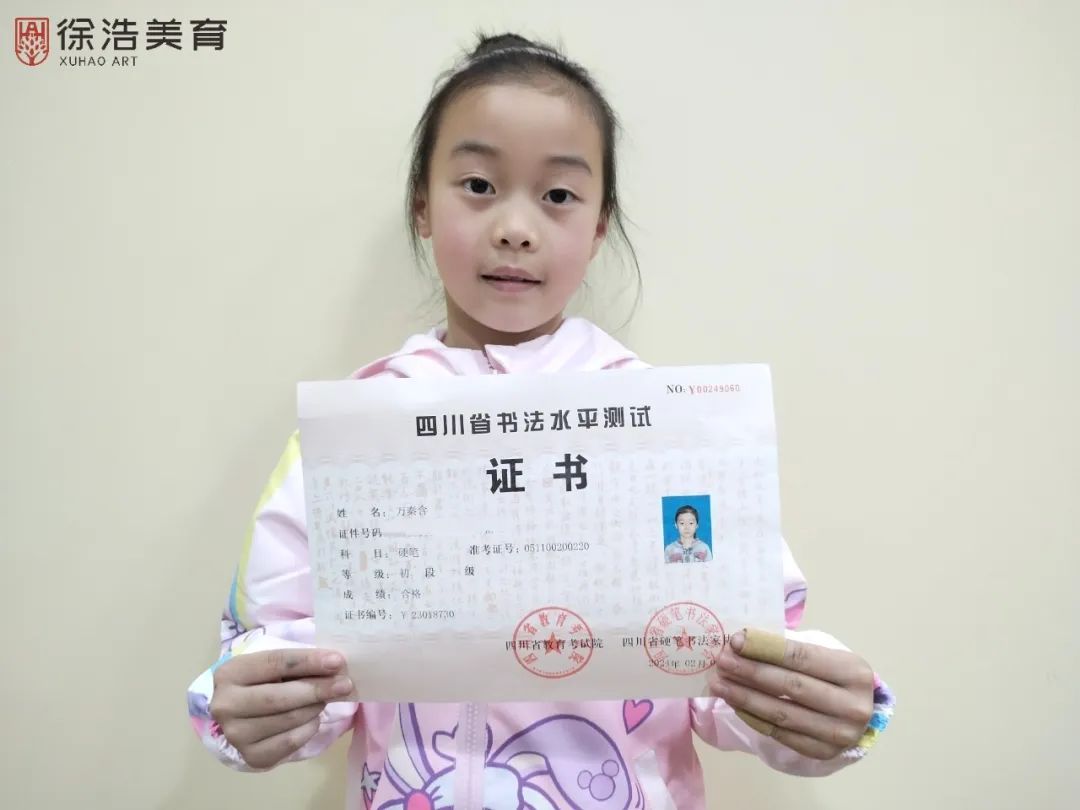 徐浩美育
XUHAO ART
NO:￥00249060
四川省书法水平测试
证书
姓 名：万秦含
证件号码
科 目：硬笔 准考证号：051100200220
等 级：初 段 一 级
成 绩：合格
证书编号：￥23018730
四川省教育考试院 四川省硬笔书法家协
2024年02月